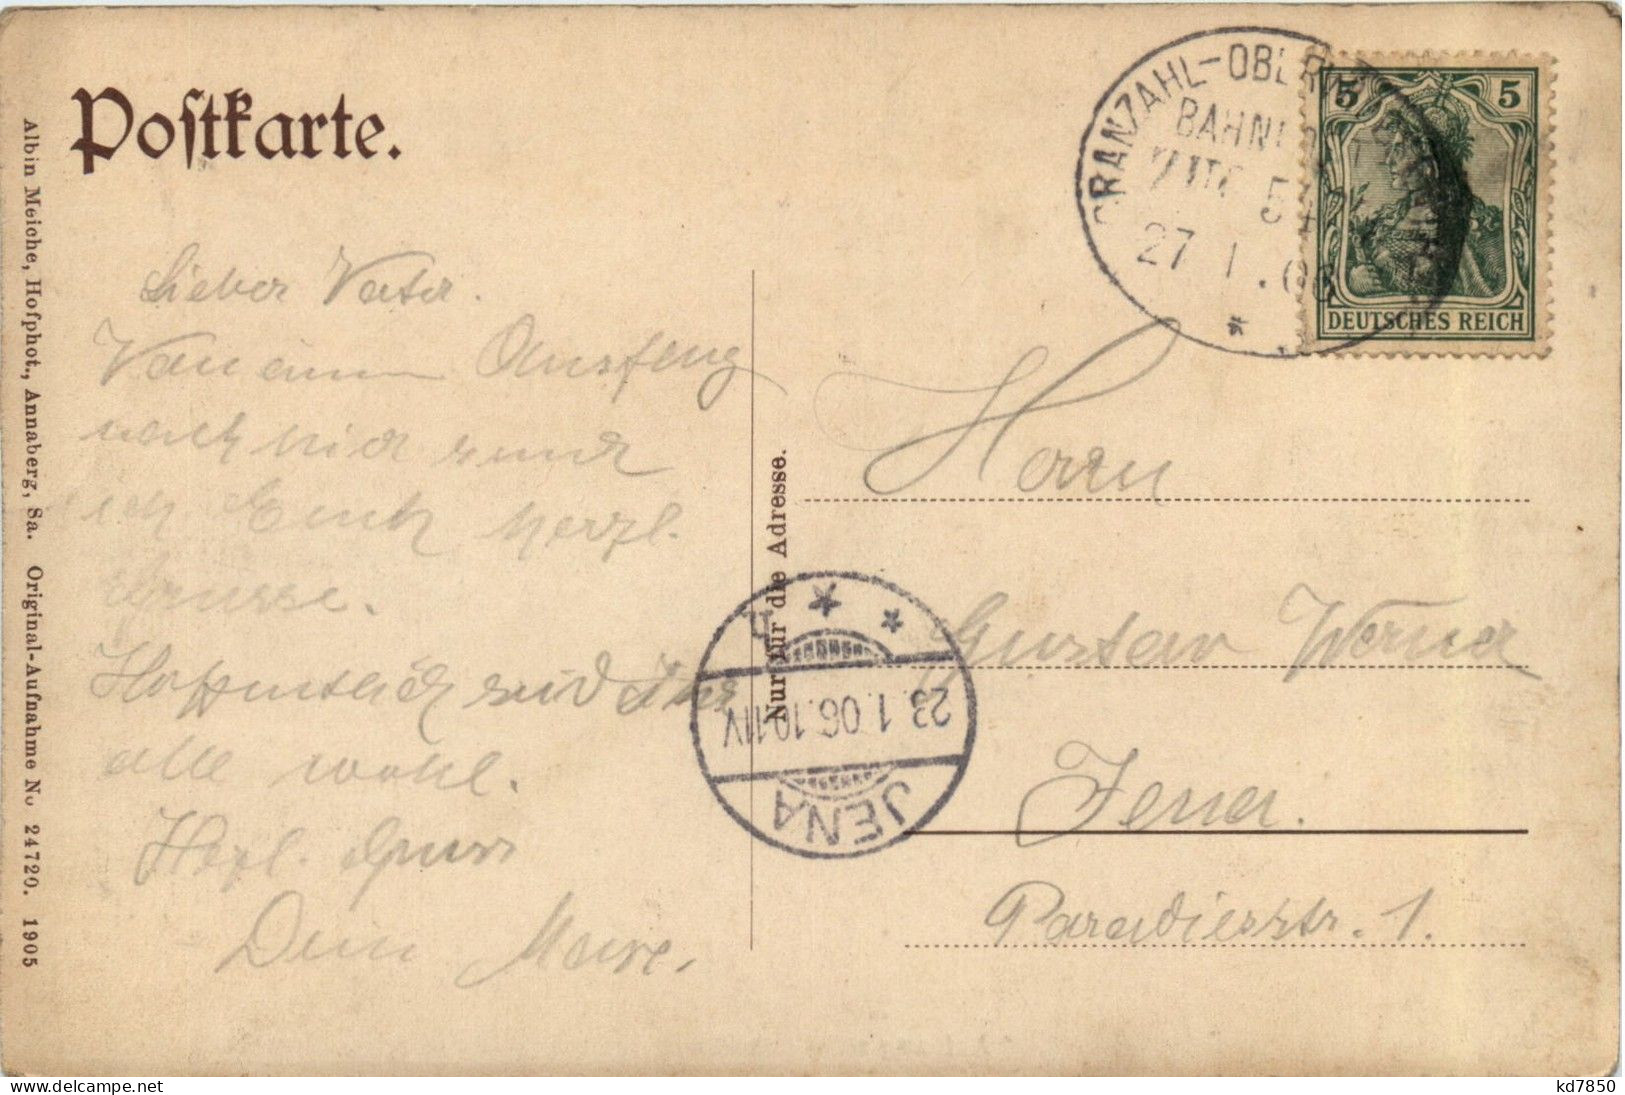 Postkarte.
Albin Meiche, Hofphot., Annaberg, Sa. Original-Aufnahme No 24720. 1905
CRANZAHL-OBER
BAHNPOST
ZUG 54
27 1 .06
5 5
DEUTSCHES REICH
Lieber Vater.
Von einem Ausflug
nach hier send
ich Euch herzl.
Grüsse.
Hoffentlich seid Ihr
alle wohl.
Herzl. Gruss
Dein
Nur für die Adresse.
JENA
23.1.06.10-11V
Herrn
Gustav Werner
Jena.
Paradiesstr. 1.
kd7850